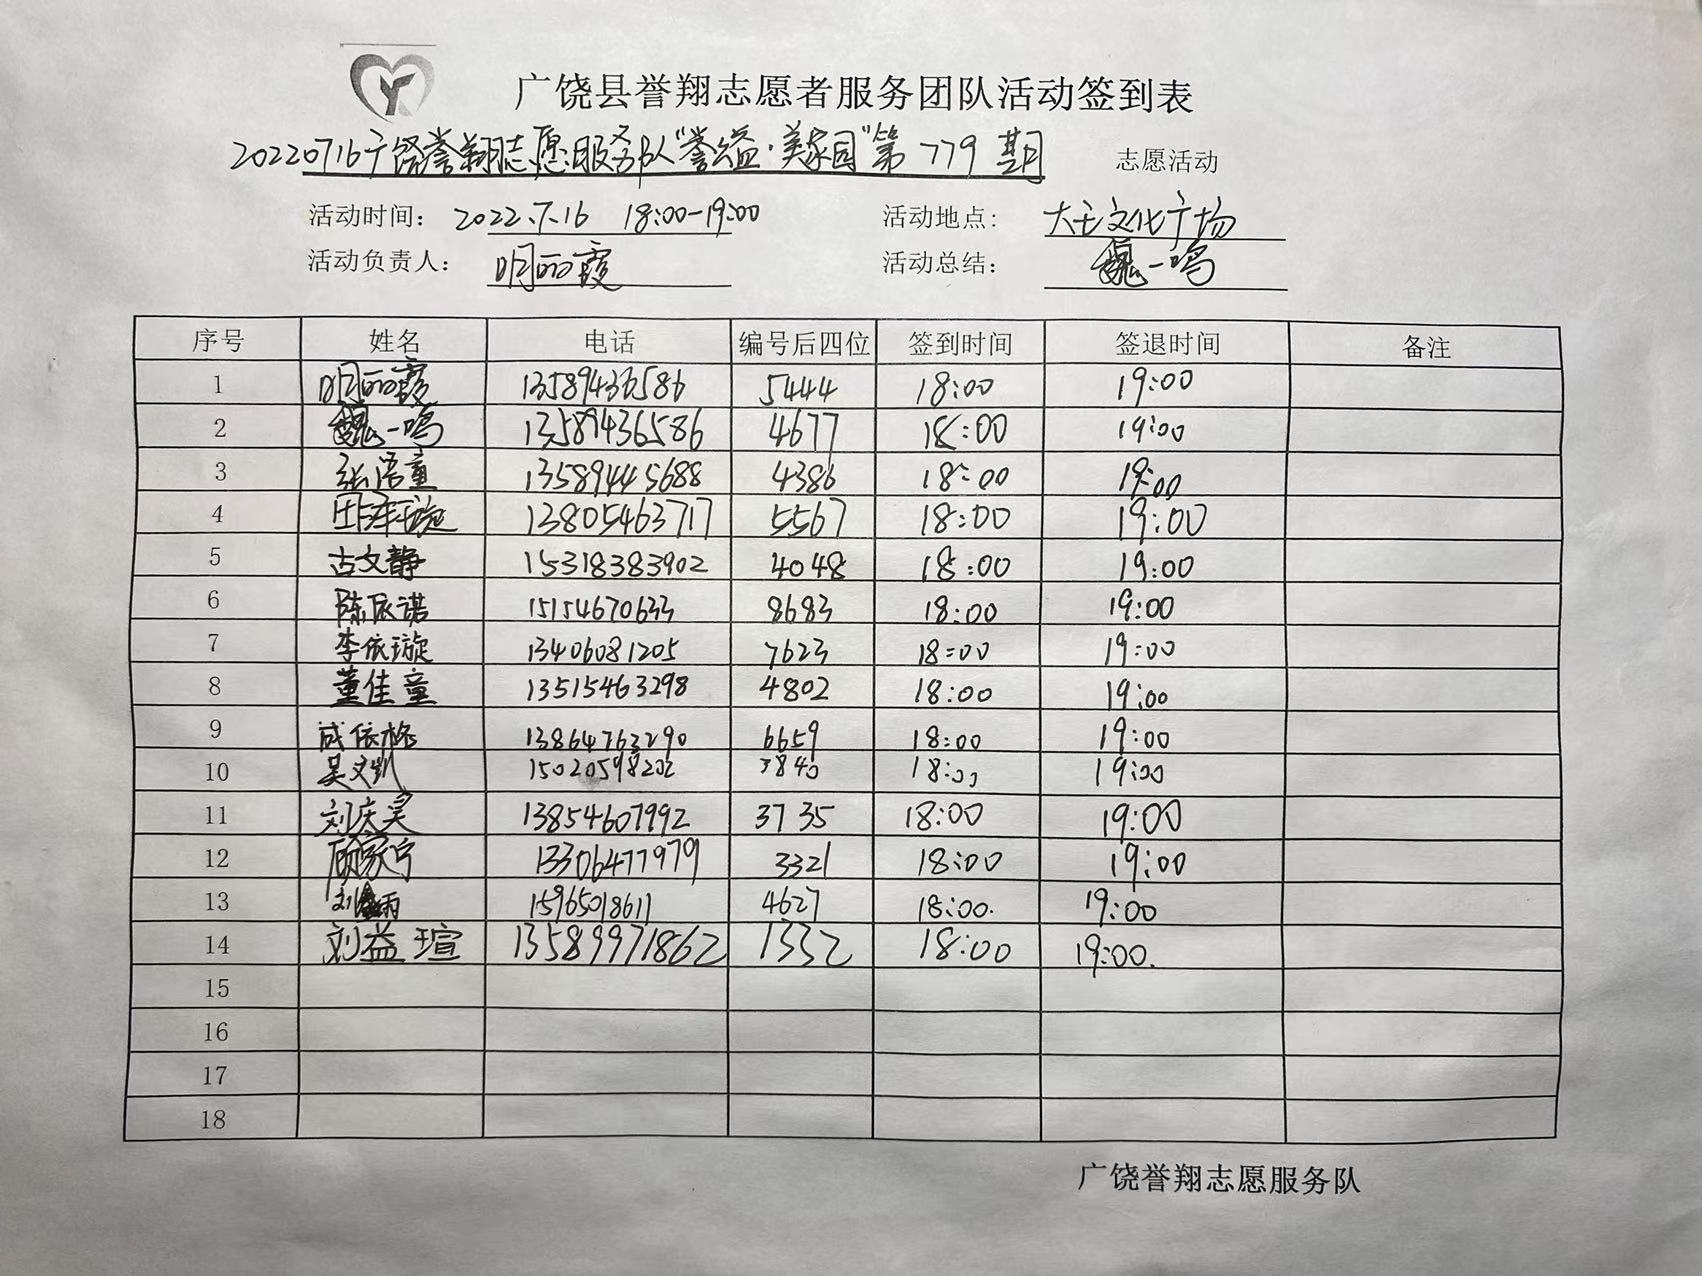 广饶县誉翔志愿者服务团队活动签到表
20220716广饶誉翔志愿服务队"誉公益·美家园"第779期 志愿活动
活动时间： 2022.7.16 18:00-19:00 活动地点： 大王文化广场
活动负责人： 明丽霞 活动总结： 魏一鸣
序号 姓名 电话 编号后四位 签到时间 签退时间 备注
1 明丽霞 13589436586 5444 18:00 19:00
2 魏一鸣 13589436586 4677 18:00 19:00
3 张语童 13589445688 4386 18:00 19:00
4 13805463717 5567 18:00 19:00
5 古文静 15318383902 4048 18:00 19:00
6 陈依诺 15154670633 8683 18:00 19:00
7 李依璇 13406081205 7623 18:00 19:00
8 董佳童 13515463298 4802 18:00 19:00
9 成依格 13864763290 6659 18:00 19:00
10 吴文凯 15020598202 3840 18:00 19:00
11 刘庆昊 13854607992 3735 18:00 19:00
12 顾家宁 13306477979 3321 18:00 19:00
13 刘 15965018611 4627 18:00. 19:00
14 刘益瑄 13589971862 1332 18:00 19:00.
15
16
17
18
广饶誉翔志愿服务队